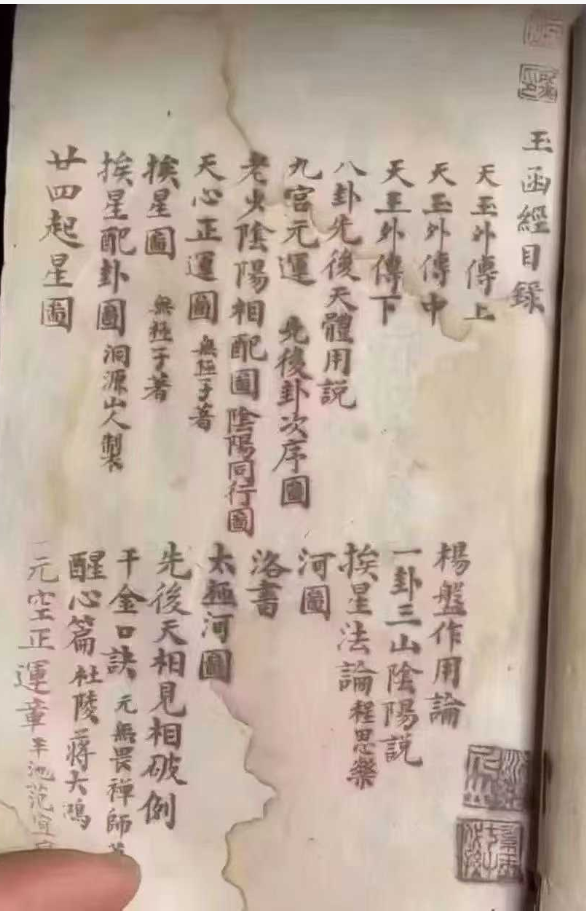 玉函經目錄
天玉外傳上
天玉外傳中
天玉外傳下
八卦先後天體用説
九宮元運 先後卦次序圖
老少陰陽相配圖 陰陽同行圖
天心正運圖 無極子著
挨星圖 無極子著
挨星配卦圖 洞源山人製
廿四起星圖
楊盤作用論
一卦三山陰陽説
挨星法論 程思樂
河圖
洛書
太極河圖
先後天相見相破例
千金口訣 元無畏禅師
醒心篇 杜陵蔣大鴻
元空正運章 平池范宜